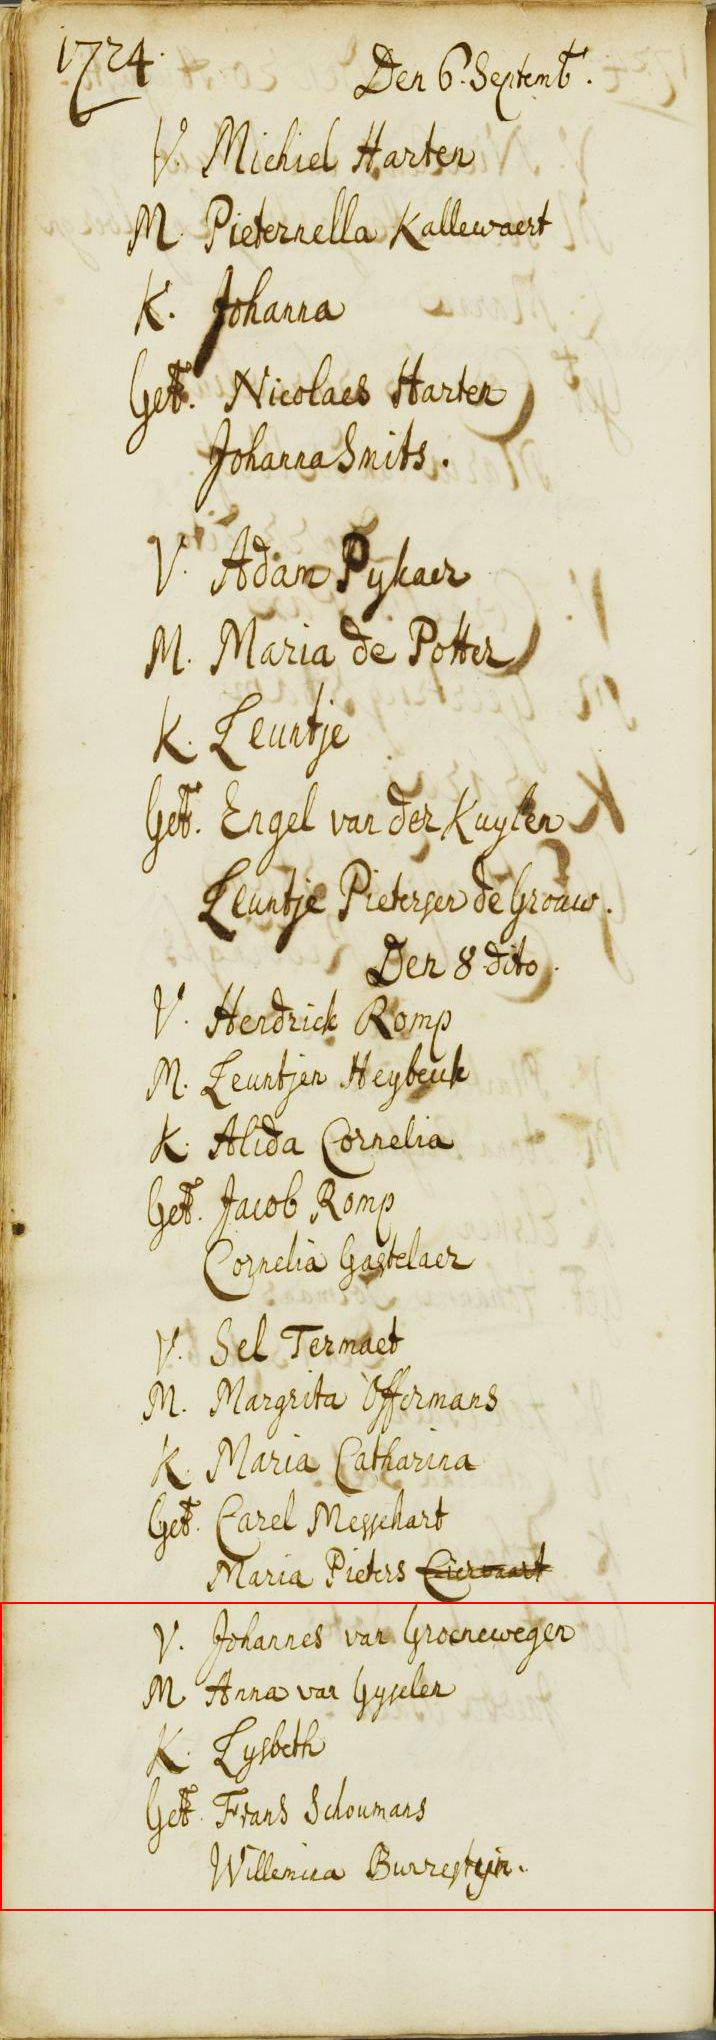 1724.
Den 6. Septemb.
V. Michiel Harten
M. Pieternella Kallewaert
K. Johanna
Get. Nicolaes Harten
Johanna Smits.
V. Adam Pykaer
M. Maria de Potter
K. Leuntje
Get. Engel van der Kuylen
Leuntje Pietersen de Grouw.
Den 8 dito.
V. Hendrick Romp
M. Leuntjen Heybeuk
K. Alida Cornelia
Get. Jacob Romp
Cornelia Gastelaer
V. Sel Termaet
M. Margrita Offermans
K. Maria Catharina
Get. Carel Messchart
Maria Pieters
V. Johannes van Groenewegen
M Anna van Gysselen
K. Lysbeth
Get. Frans Schoumans
Willemina Burrestyn.